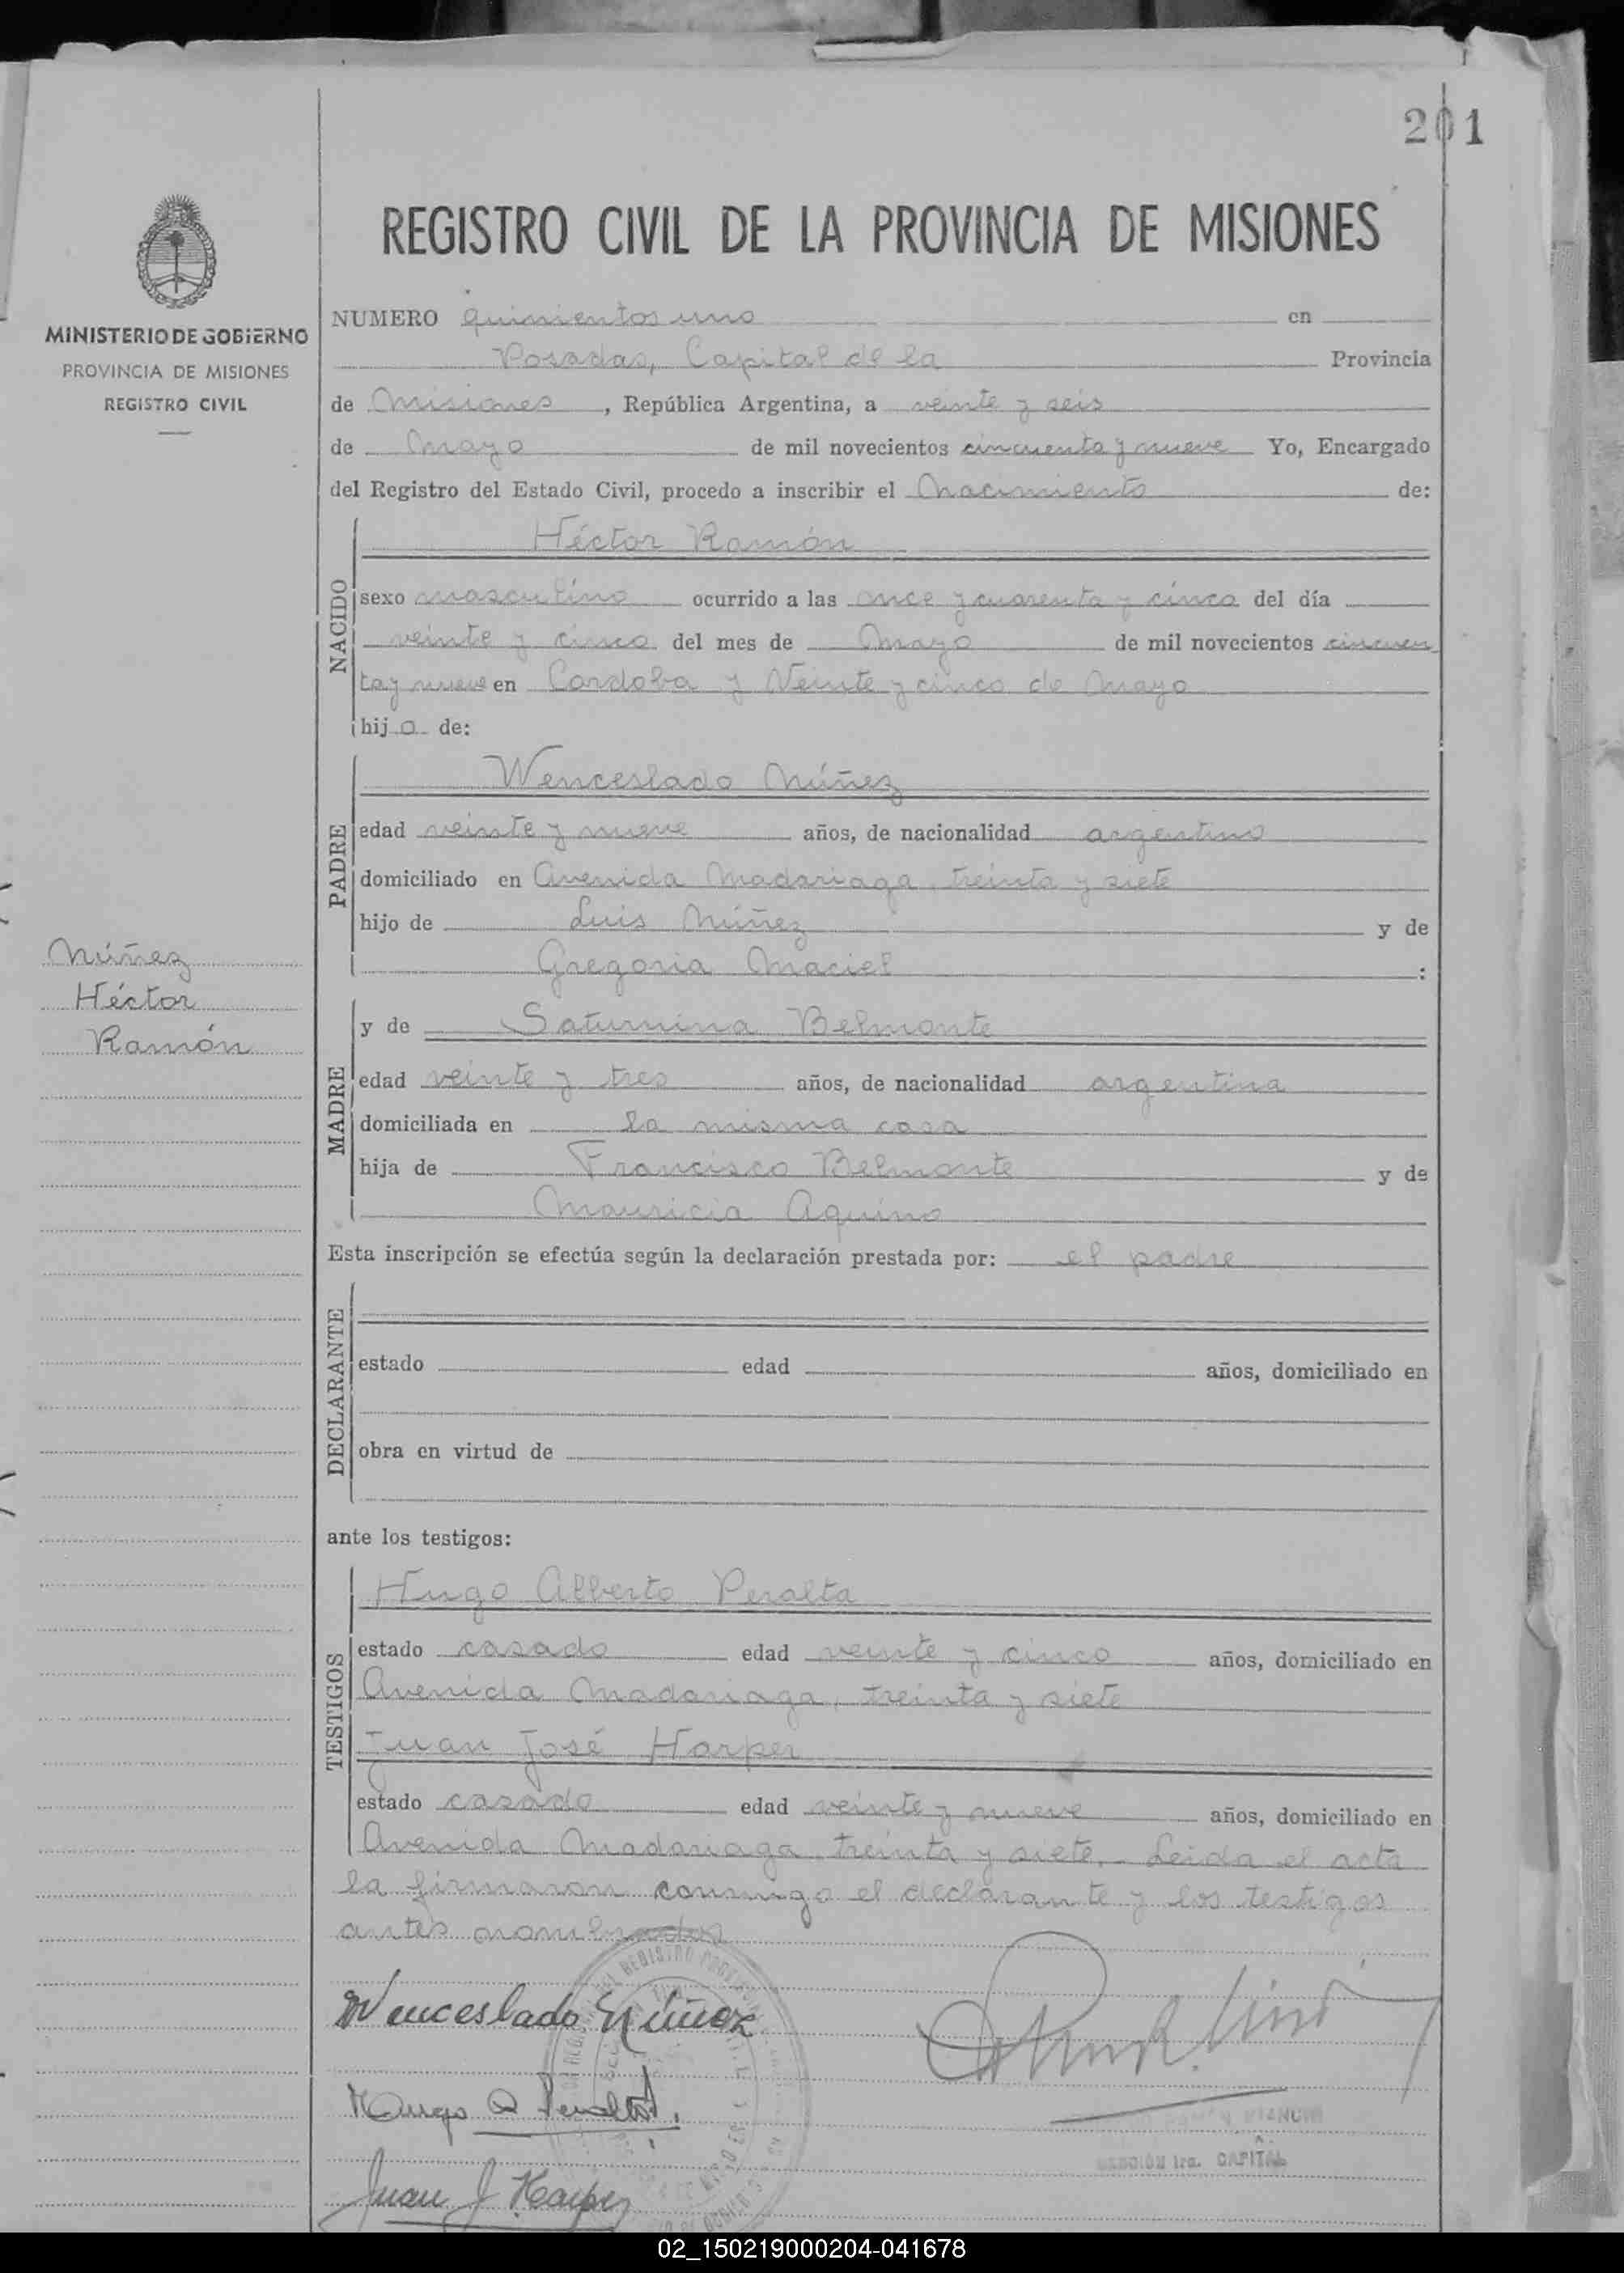 201
REGISTRO CIVIL DE LA PROVINCIA DE MISIONES
MINISTERIO DE GOBIERNO
PROVINCIA DE MISIONES
REGISTRO CIVIL
NUMERO quinientos uno en
Posadas, Capital de la Provincia
de Misiones, República Argentina, a veinte y seis
de Mayo de mil novecientos cincuenta y nueve Yo, Encargado
del Registro del Estado Civil, procedo a inscribir el Nacimiento de:
NACIDO
Héctor Ramón
sexo masculino ocurrido a las once y cuarenta y cinco del día
veinte y cinco del mes de Mayo de mil novecientos cincuen
ta y nueve en Cordoba y Veinte y cinco de Mayo
hijo de:
PADRE
Wenceslado Núñez
edad veinte y nueve años, de nacionalidad argentino
domiciliado en Avenida Madariaga, treinta y siete
hijo de Luis Núñez y de
Gregoria Maciel :
Núñez
Héctor
Ramón
MADRE
y de Saturnina Belmonte
edad veinte y tres años, de nacionalidad argentina
domiciliada en la misma casa
hija de Francisco Belmonte y de
Mauricia Aquino
Esta inscripción se efectúa según la declaración prestada por: el padre
DECLARANTE
estado edad años, domiciliado en
obra en virtud de
ante los testigos:
TESTIGOS
Hugo Alberto Peralta
estado casado edad veinte y cinco años, domiciliado en
Avenida Madariaga, treinta y siete
Juan José Harper
estado casado edad veinte y nueve años, domiciliado en
Avenida Madariaga, treinta y siete.- Leida el acta
la firmaron conmigo el declarante y los testigos
antes nombrados
Wenceslado Núñez
Hugo A Peralta
Juan J. Harper
SECCIÓN 1ra. CAPITAL
02_150219000204-041678